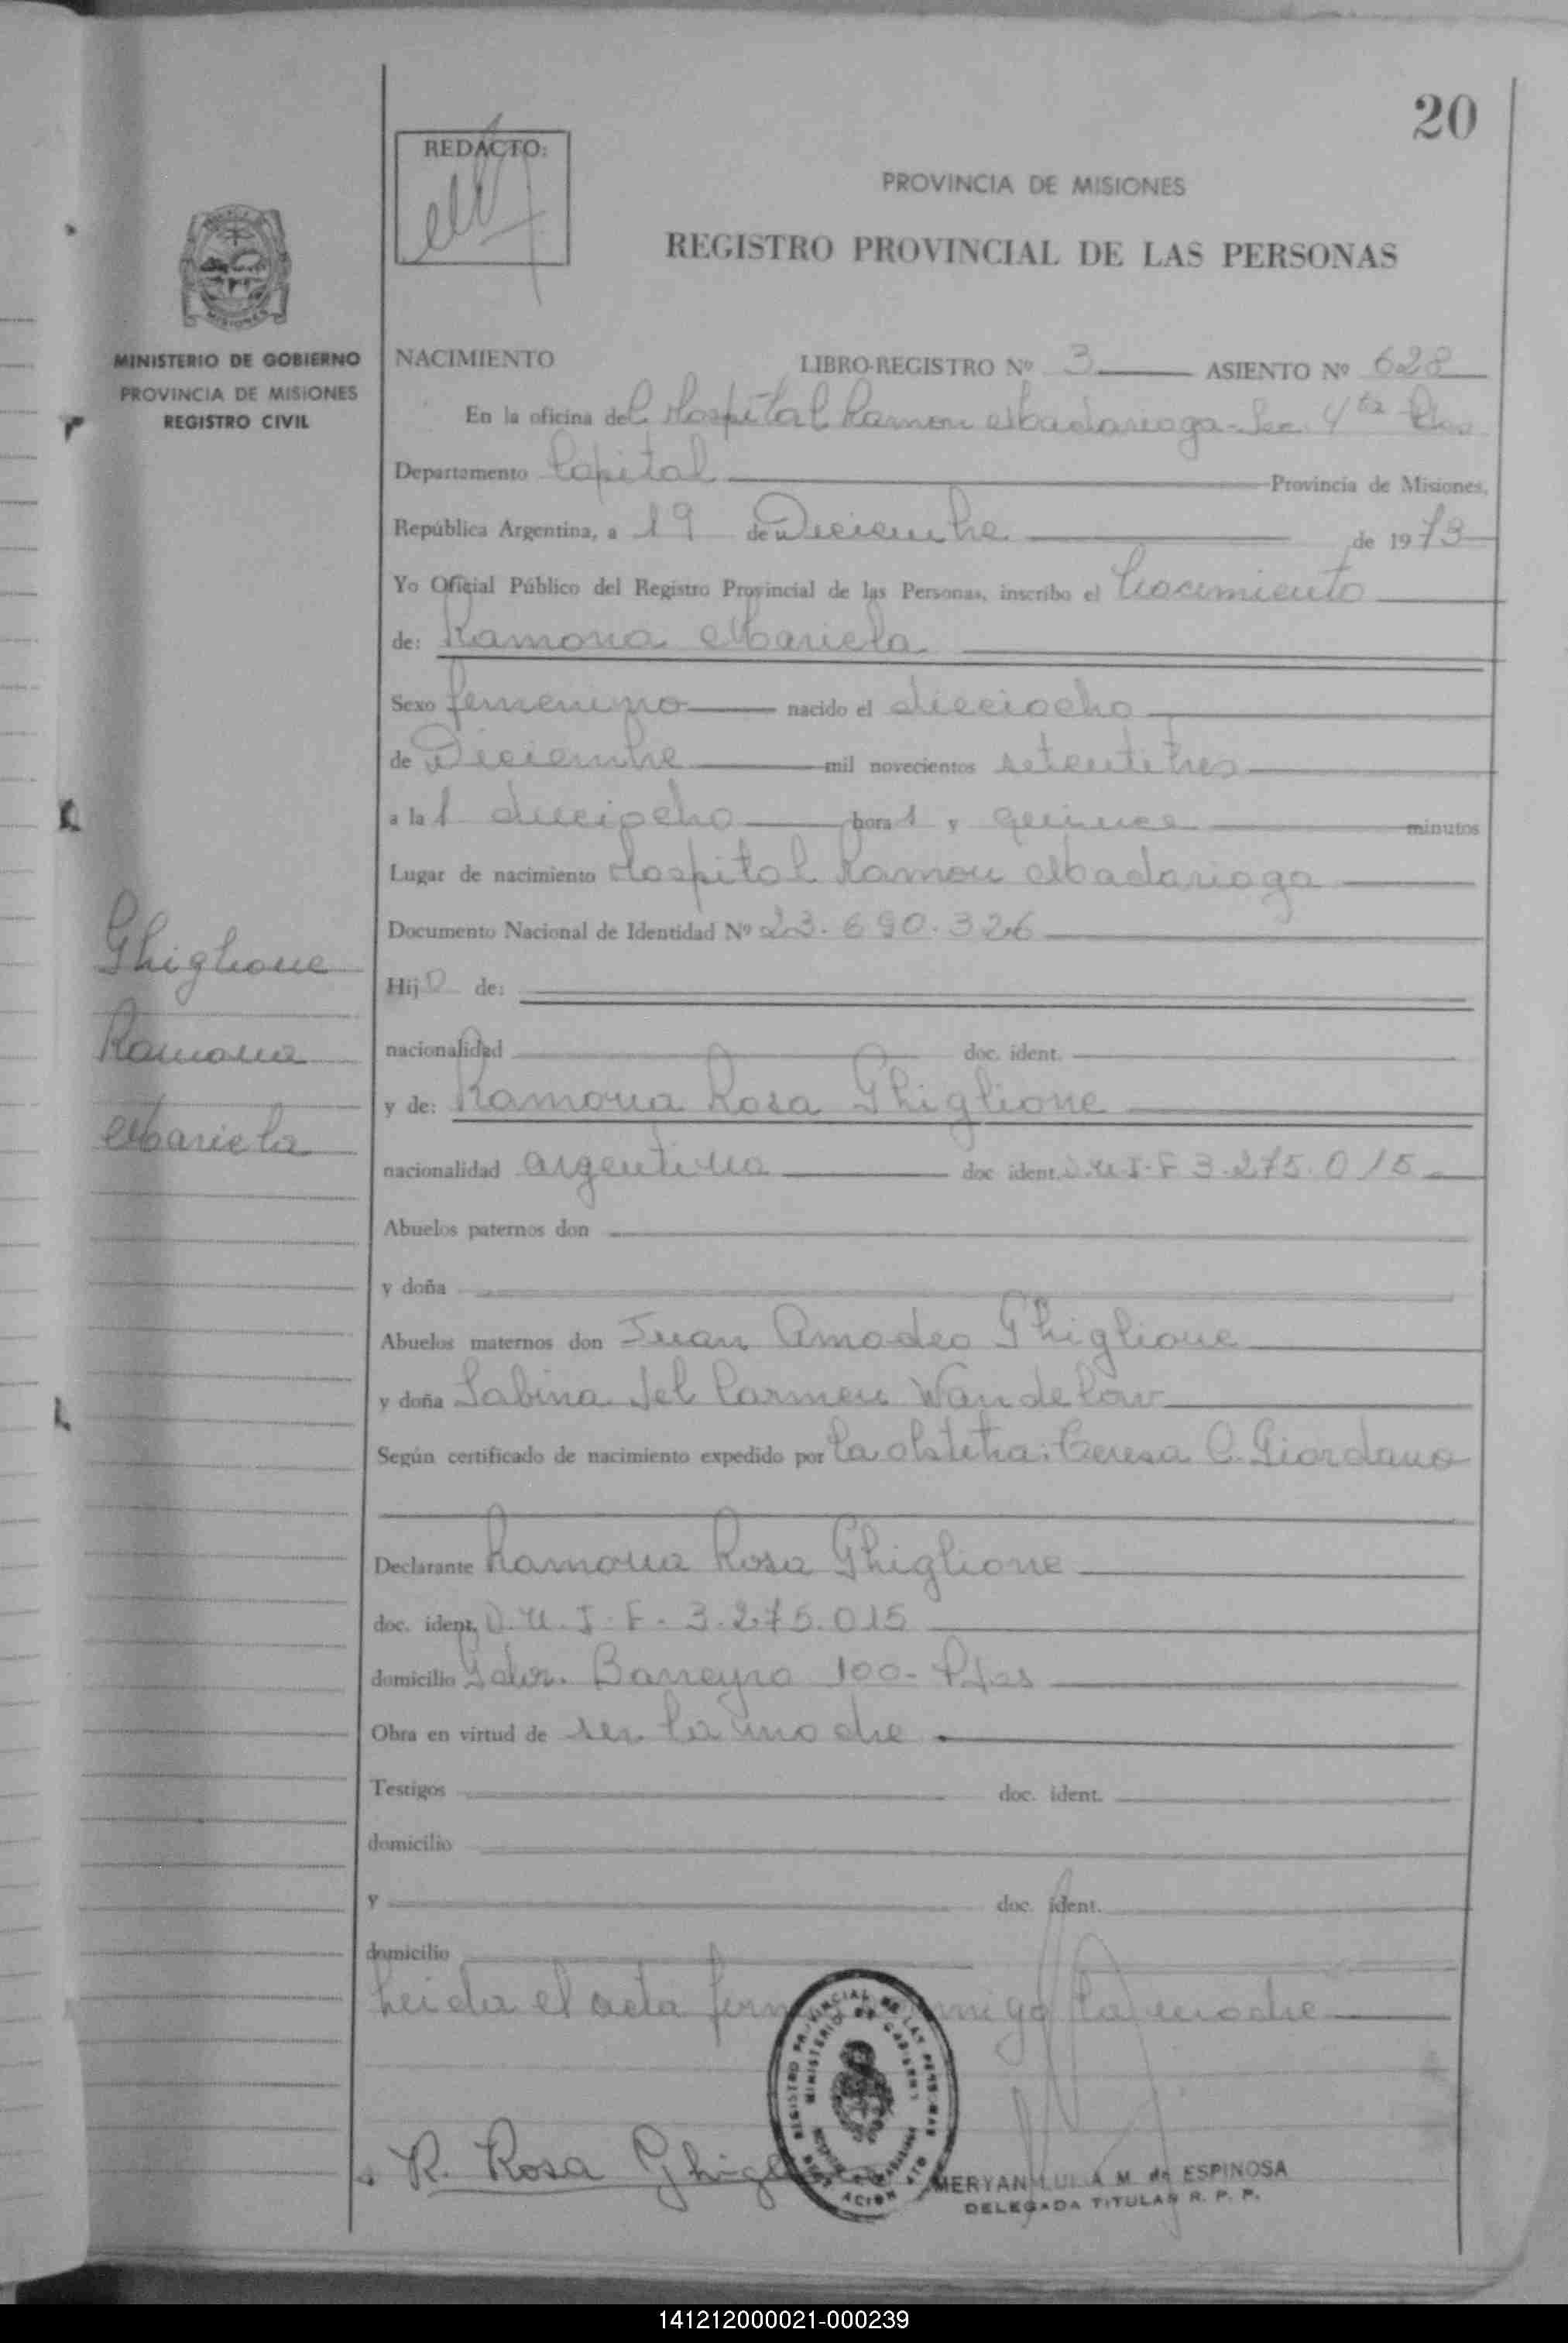 20
REDACTO:
PROVINCIA DE MISIONES
REGISTRO PROVINCIAL DE LAS PERSONAS
MINISTERIO DE GOBIERNO
PROVINCIA DE MISIONES
REGISTRO CIVIL
NACIMIENTO LIBRO-REGISTRO Nº 3 ASIENTO Nº 628
En la oficina del Hospital Ramon Madariaga - Sec. 4ta Pdas
Departamento Capital Provincia de Misiones,
República Argentina, a 19 de Diciembre de 1973
Yo Oficial Público del Registro Provincial de las Personas, inscribo el Nacimiento
de: Ramona Mariela
Sexo femenino nacido el dieciocho
de Diciembre mil novecientos setentitres
a la s dieciocho hora s y quince minutos
Lugar de nacimiento Hospital Ramon Madariaga
Documento Nacional de Identidad Nº 23.690.326
Ghiglione
Ramona
Mariela
Hij a de:
nacionalidad doc. ident.
y de: Ramona Rosa Ghiglione
nacionalidad argentina doc ident. D.U.I.F 3.275.015
Abuelos paternos don
y doña
Abuelos maternos don Juan Amadeo Ghiglione
y doña Sabina del Carmen Wandelow
Según certificado de nacimiento expedido por la obstetra: Teresa C. Giordano
Declarante Ramona Rosa Ghiglione
doc. ident. D.U.I.F. 3.275.015
domicilio Gdor. Barreyro 100 - Pdas
Obra en virtud de ser la madre
Testigos doc. ident.
domicilio
y doc. ident.
domicilio
Leida el acta firma conmigo la madre
REGISTRO PROVINCIAL DE LAS PERSONAS
MINISTERIO DE GOBIERNO
R. Rosa Ghiglione
MERYAN LUISA M. de ESPINOSA
DELEGADA TITULAR R. P. P.
141212000021-000239